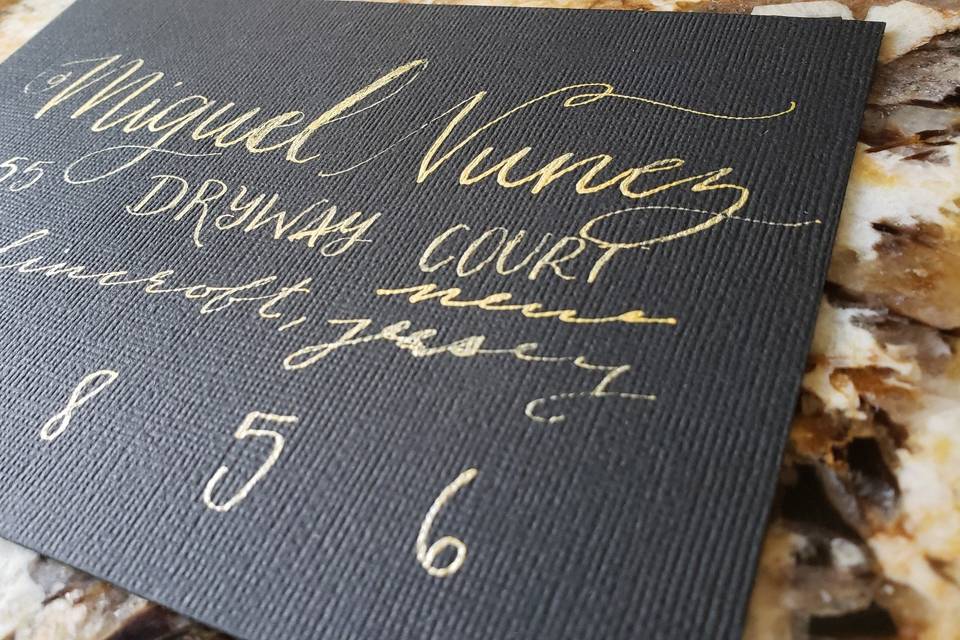 Miguel Nunez
55 DRYWAY COURT
lincroft, new
jersey
8 5 6